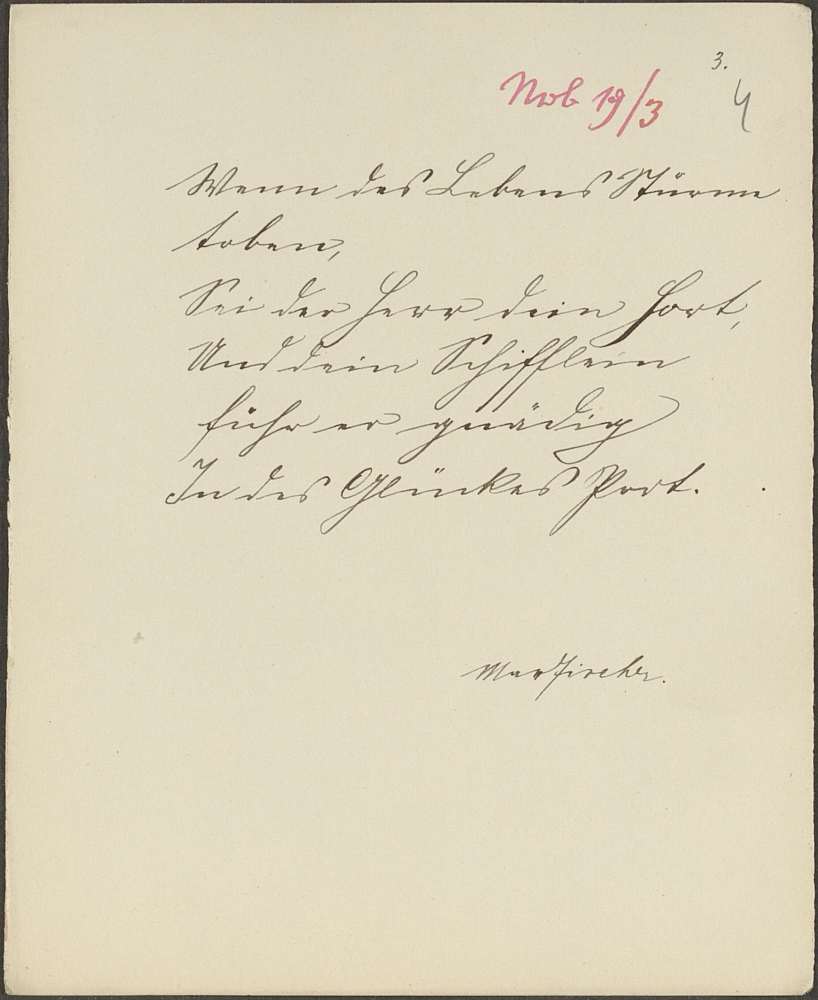 3.
Nob 19/3
4
Wenn des Lebens Stürme
toben,
Sei der Herr dein Hort,
Und dein Schifflein
führ er gnädig
In des Glückes Port.
Max